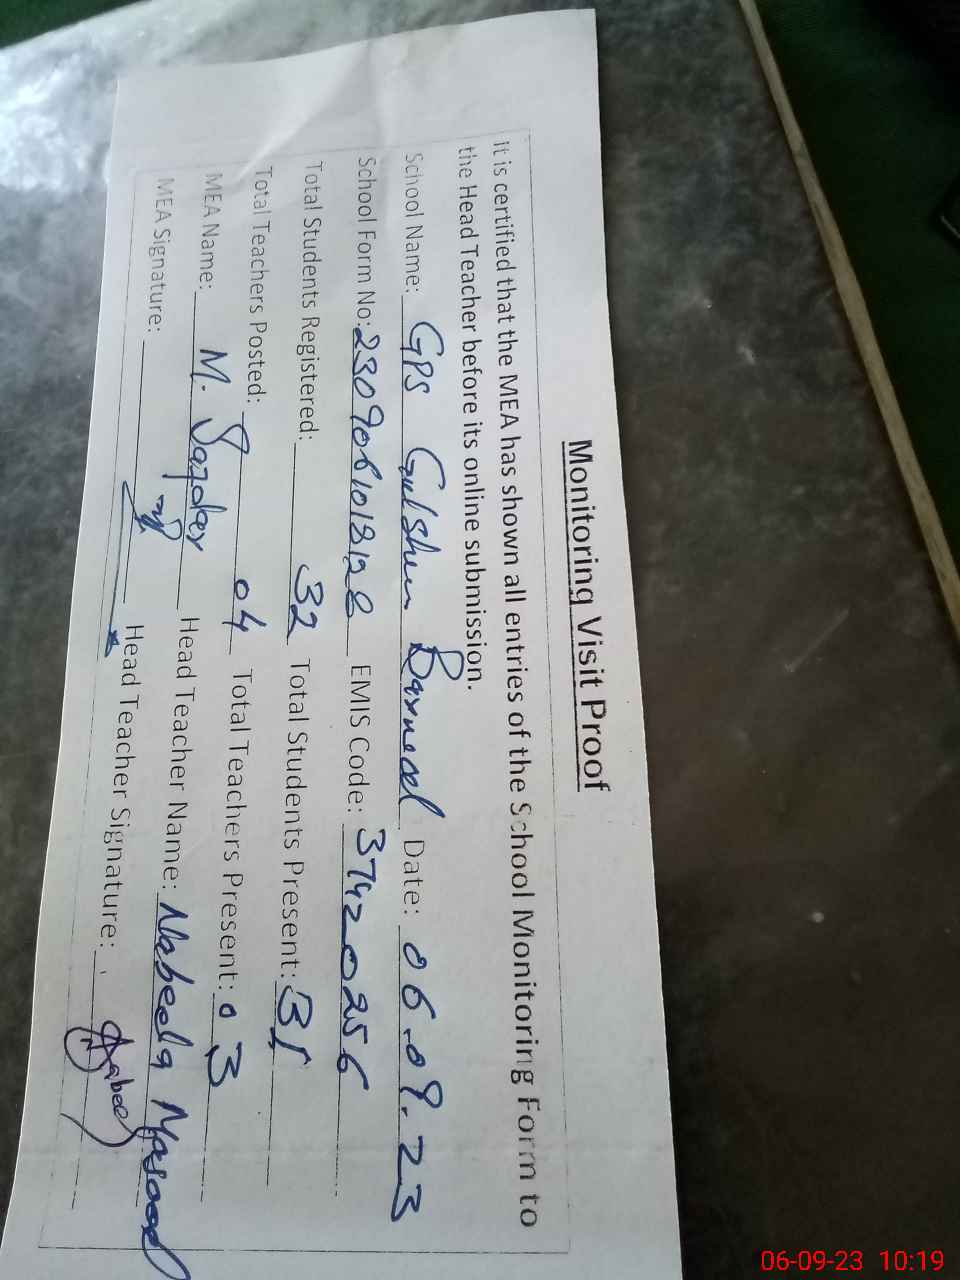 Monitoring Visit Proof
It is certified that the MEA has shown all entries of the School Monitoring Form to
the Head Teacher before its online submission.
School Name: GPS Gulshan Date: 06.09.23
School Form No: 230906101812 8 EMIS Code: 37420256
Total Students Registered: 32 Total Students Present: 31
Total Teachers Posted: 04 Total Teachers Present: 03
MEA Name: M. Safdar Head Teacher Name: Nabeela Masood
MEA Signature: Head Teacher Signature: Nabeel
06-09-23 10:19